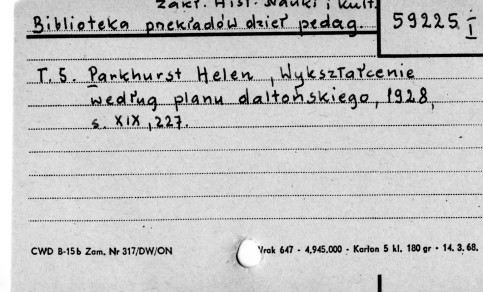 Zakł. Hist. Nauki i Kult.
Biblioteka przekładów dzieł pedag.
59225 I
T. 5. Parkhurst Helen, Wykształcenie
według planu daltońskiego, 1928,
s. XIX, 227.
CWD B-15b Zam. Nr 317/DW/ON
Wrak 647 - 4,945.000 - Karton 5 kl. 180 gr - 14. 3. 68.